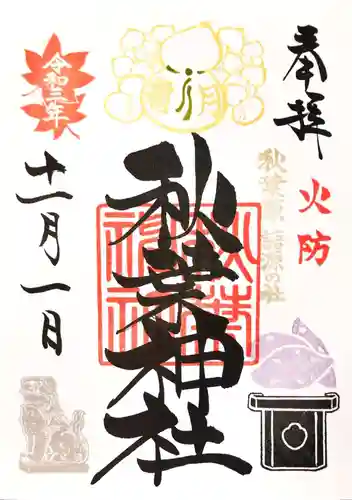 奉拝
火防
秋葉原 語源の社
秋葉神社
月
令和三年
十一月一日